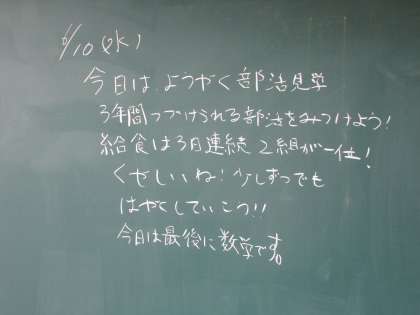 6/10(水)
今日は、ようやく部活見学
3年間つづけられる部活をみつけよう!
給食は3日連続 2組が一位!
くやしいね!少しずつでも
はやくしていこう!!
今日は最後に数学です。